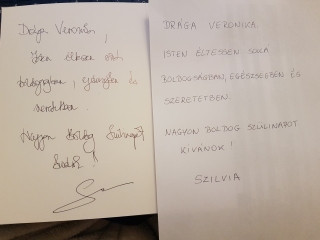 Drága Veronika,
Isten éltessen sok
boldogságban, egészségben és
szeretetben.
Nagyon Boldog Szülinapot
kívánok!
DRÁGA VERONIKA.
ISTEN ÉLTESSEN SOKA
BOLDOGSÁGBAN, EGÉSZSÉGBEN ÉS
SZERETETBEN.
NAGYON BOLDOG SZÜLINAPOT
KIVÁNOK!
SZILVIA